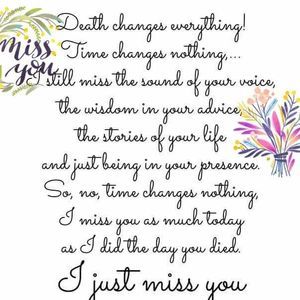 miss
you
Death changes everything!
Time changes nothing,...
I still miss the sound of your voice,
the wisdom in your advice,
the stories of your life
and just being in your presence.
So, no, time changes nothing,
I miss you as much today
as I did the day you died.
I just miss you